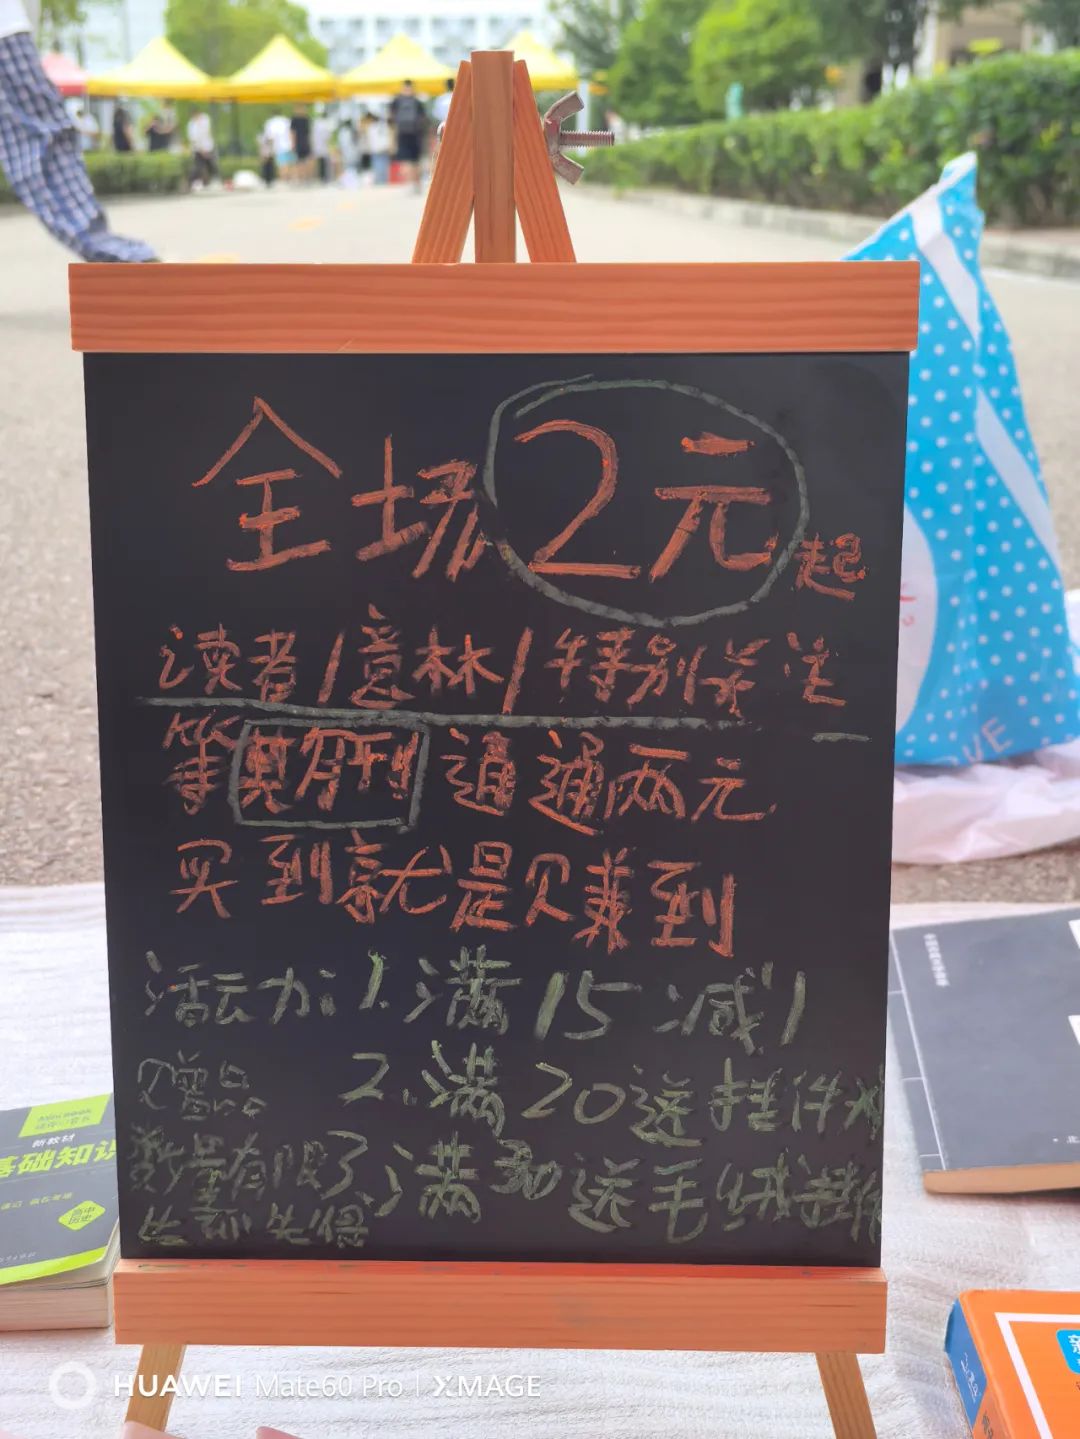 全场2元起
读者/意林/特别关注
等期刊通通两元
买到就是赚到
活动：1.满15减1
赠品 2.满20送挂件
数量有限 3.满30送毛绒挂件
先到先得
新教材
基础知识
高中
历史
HUAWEI Mate60 Pro | XMAGE